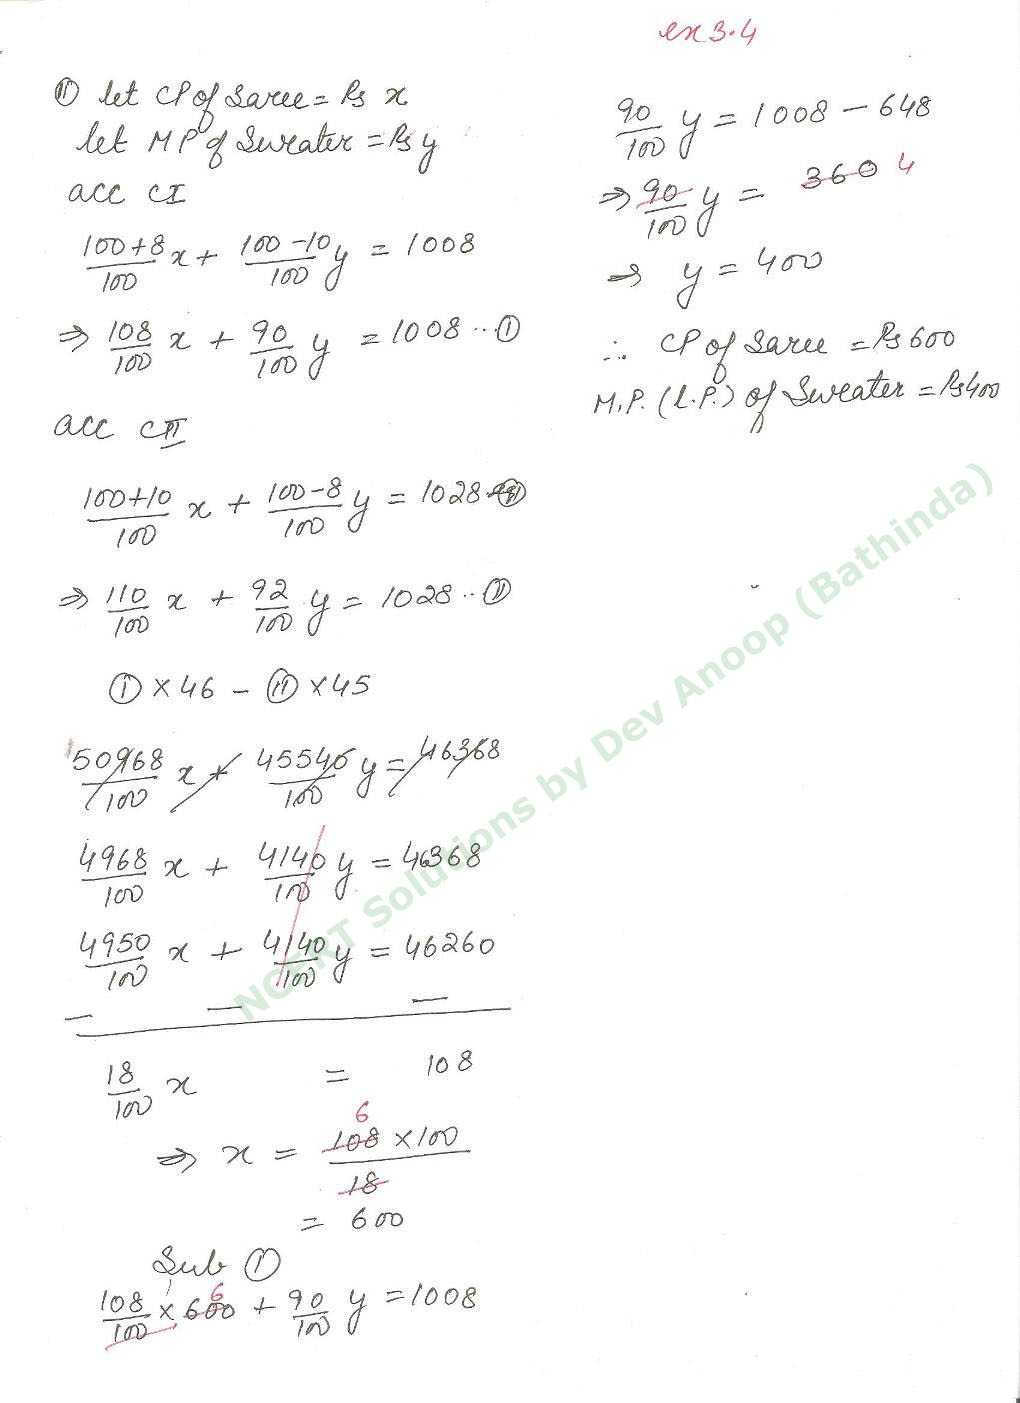 ex 3.4
⑪ let CP of Saree = Rs x
let M P of Sweater = Rs y
acc CI
100+8/100 x + 100-10/100 y = 1008
⇒ 108/100 x + 90/100 y = 1008 .. ①
acc CII
100+10/100 x + 100-8/100 y = 1028
⇒ 110/100 x + 92/100 y = 1028 .. Ⅱ
① × 46 - Ⅱ × 45
50968/100 x + 45546/100 y = 46368
4968/100 x + 4140/100 y = 46368
4950/100 x + 4140/100 y = 46260
- - -
18/100 x = 108
6
⇒ x = 108 × 100/18
= 600
Sub ①
6
108/100 × 600 + 90/100 y = 1008
90/100 y = 1008 - 648
⇒ 90/100 y = 360 4
⇒ y = 400
∴ CP of Saree = Rs 600
M.P. (L.P.) of Sweater = Rs 400
NCERT Solutions by Dev Anoop (Bathinda)